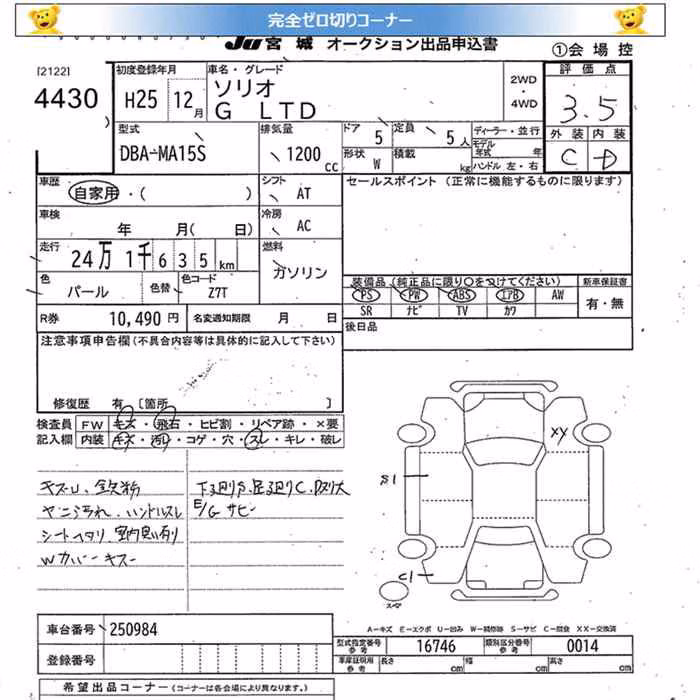 完全ゼロ切りコーナー
JU 宮城 オークション出品申込書
①会場控
[2122]
4430
初度登録年月
H25 12月
車名・グレード
ソリオ
G LTD
2WD
・
4WD
評価点
3.5
外装 内装
C D
型式
DBA-MA15S
排気量
1200 cc
ドア 5
定員 5人
形状 W
積載 kg
ディーラー・並行
モデル年式 年
ハンドル 左・右
車歴
自家用・( )
シフト
AT
セールスポイント (正常に機能するものに限ります)
車検
年 月( 日)
冷房
AC
走行
24万 1千 6 3 5 km
燃料
ガソリン
色
パール
色替
色コード
Z7T
装備品 (純正品に限り○をつけてください)
新車保証書
PS PW ABS エアB AW
SR ナビ TV カワ
有・無
R券 10,490 円
名変通知期限 月 日
後日品
注意事項申告欄(不具合内容等は具体的に記入して下さい)
修復歴 有 [箇所
検査員
記入欄
FW キズ・飛石・ヒビ割・リペア跡・×要
内装 キズ・汚レ・コゲ・穴・スレ・キレ・破レ
キズU、鉄粉
ヤニ汚れ、ハンドルスレ
シートヘタリ、室内臭い有り
Wカバーキズ
下廻りS、足廻りC、
E/G サビー
XY
S1
C1
A-キズ E-エクボ U-凹み W-補修跡 S-サビ C-腐食 XX-交換済
車台番号 250984
登録番号
型式指定番号
参考
16746
類別区分番号
参考
0014
車庫証明用
参考
長さ cm 幅 cm 高さ cm
希望出品コーナー (コーナーは各会場により異なります。)